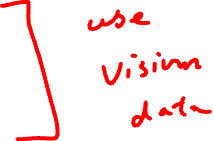 use
vision
data